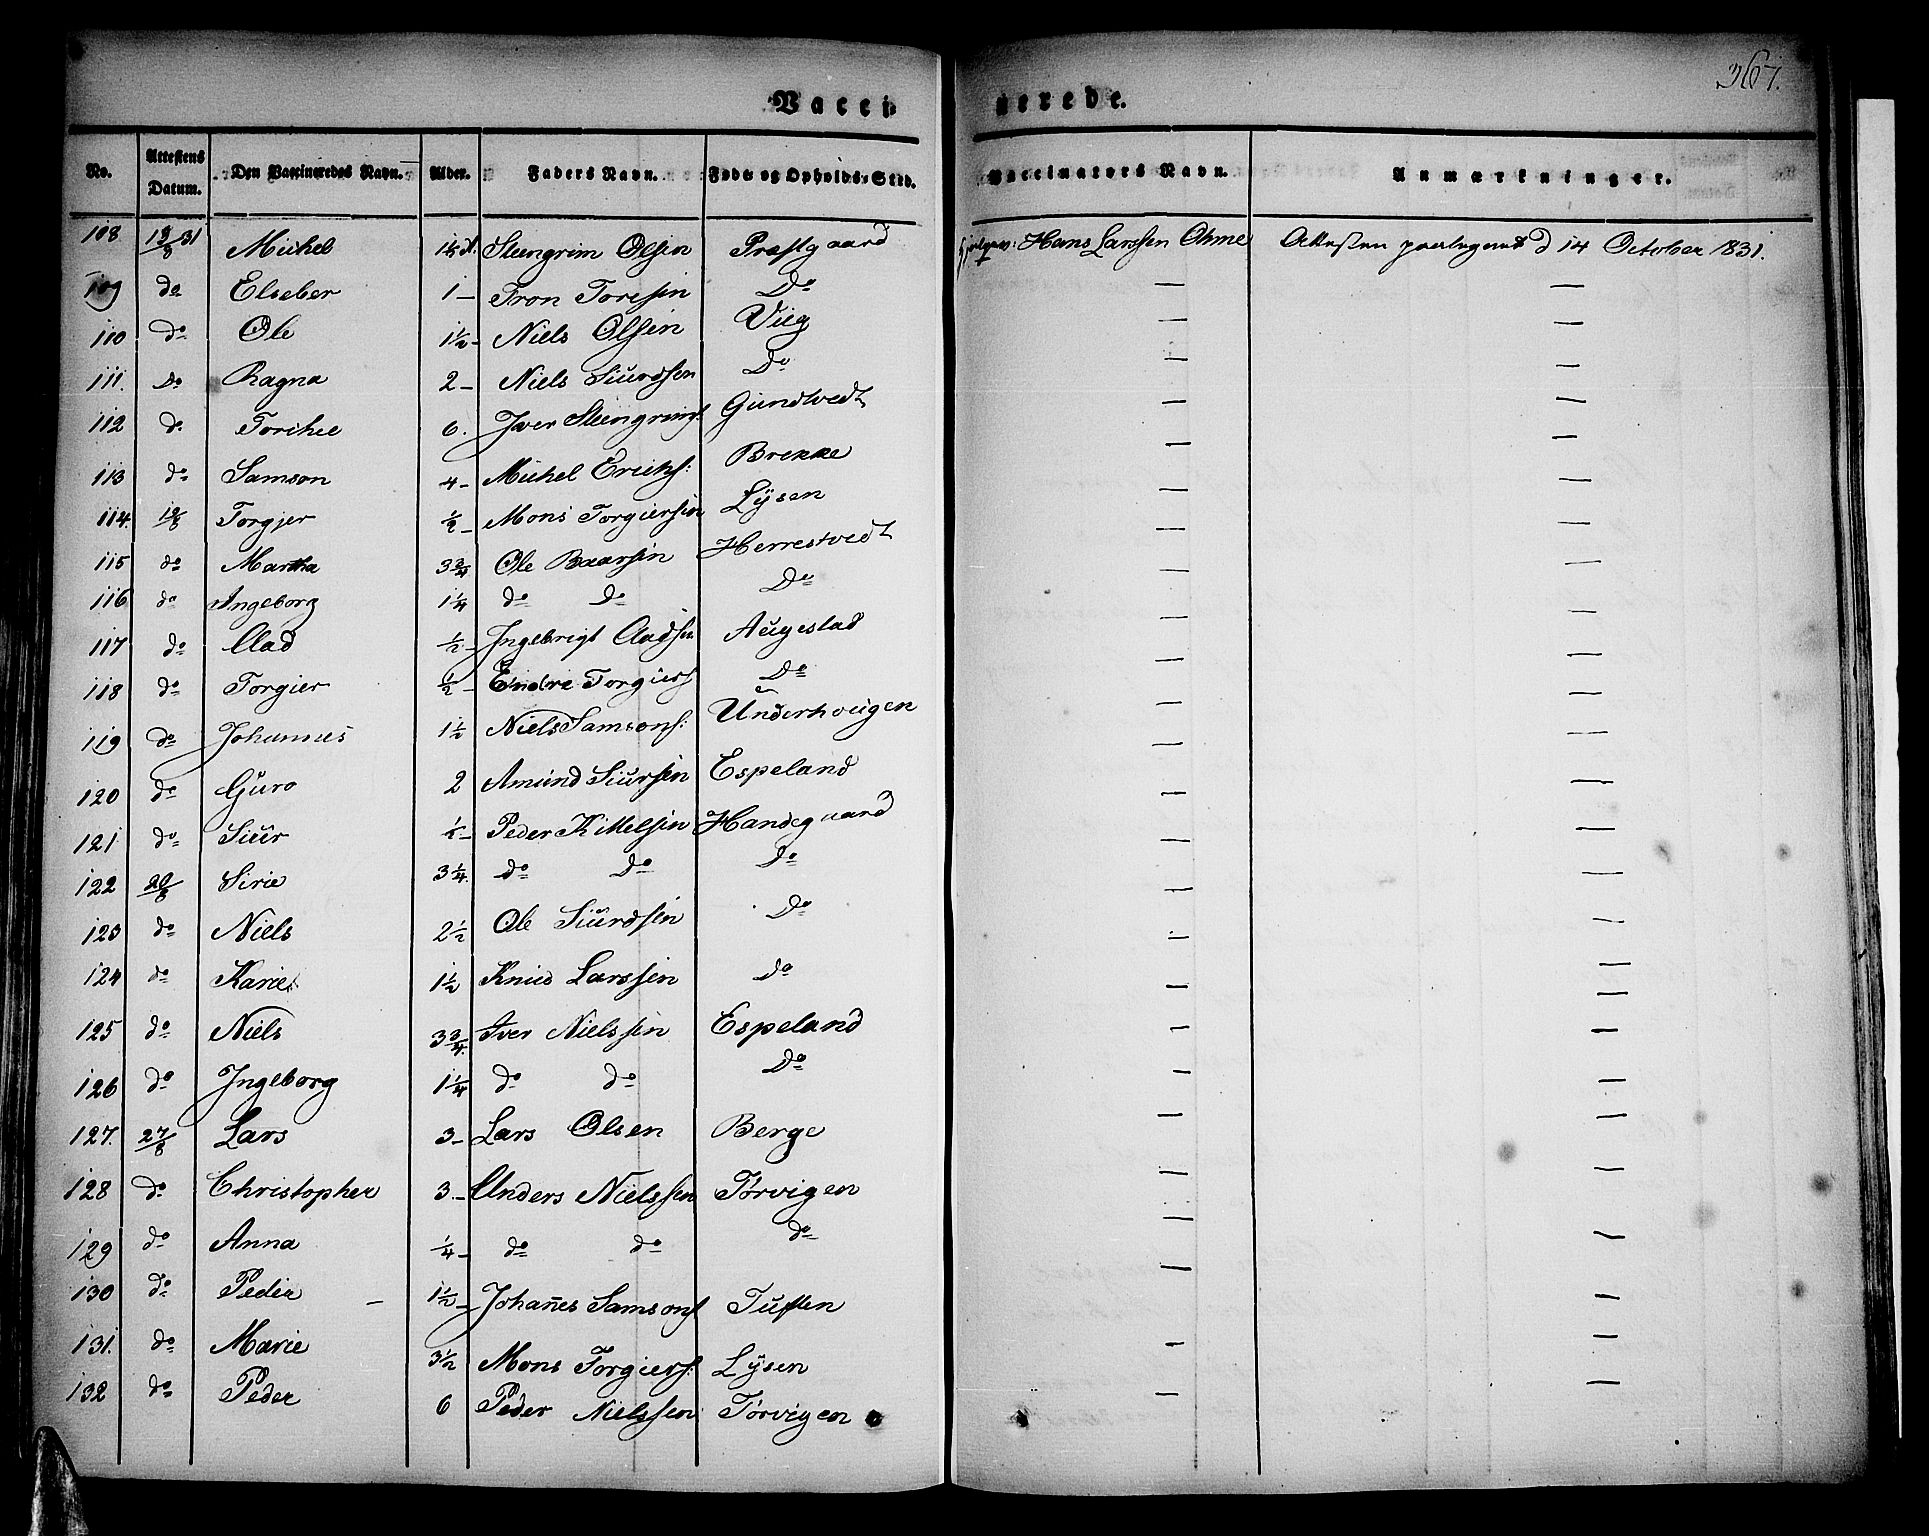 367.
Vacci nerede.
No. Attestens Datum. Den Vaccineredes Navn. Alder. Faders Navn. Føde og Opholds-Sted. Vaccinators Navn. Anmærkninger.
108 19/8 31 Michel Steengrim Olsen Præstgaard Hans Larssen Ohme Attesten paategnet d 14 October 1831.
109 do Elseber 1 – Tron Toresen Do — —
110 do Ole 1½ – Niels Olsen Viig — —
111. Do Ragna 2 – Niels Siurdsen Do — —
112 do Torchel 6. Iver Steengrims Gundtvedt — —
113 do Samson 4 – Michel Erichs: Brekke — —
114. 19/8 Torgjer ½ – Mons Torgiersen Lysen — —
115 do Martha 3¾ Ole Baarsen Herrestvedt — —
116 do Ingeborg 1¼ do Do Do — —
117 do Olad ½ – Ingebrigt Oladsen Augestad — —
118 do Torgier ½ – Endre Torgiers Do — —
119 do Johannes 1½ Niels Samsons: Underhougen — —
120 do Guro 2 Amund Siursen Espeland — —
121 do Siur ½ – Peder Kittelsen Handegaard — —
122 20/8 Sirie 3¼. do Do Do — —
123 do Niels 2½ Ole Siurdsen Do — —
124 do Karie 1½ Knud Larssen Do — —
125 do Niels 3¾. Iver Nielssen Espeland — —
126 do Ingeborg 1¼ do do Do — —
127. 27/8 Lars 3 – Lars Olsen Berge — —
128 do Christopher 3. – Anders Nielssen Tørvigen — —
129 do Anna ¼ – do do do — —
130 do Peder – 1½ – Johanes Samsons Tuften — —
131. do Marie 3½ Mons Torgiers: Lysen — —
132 do Peder 6 Peder Nielssen Tørvigen — —